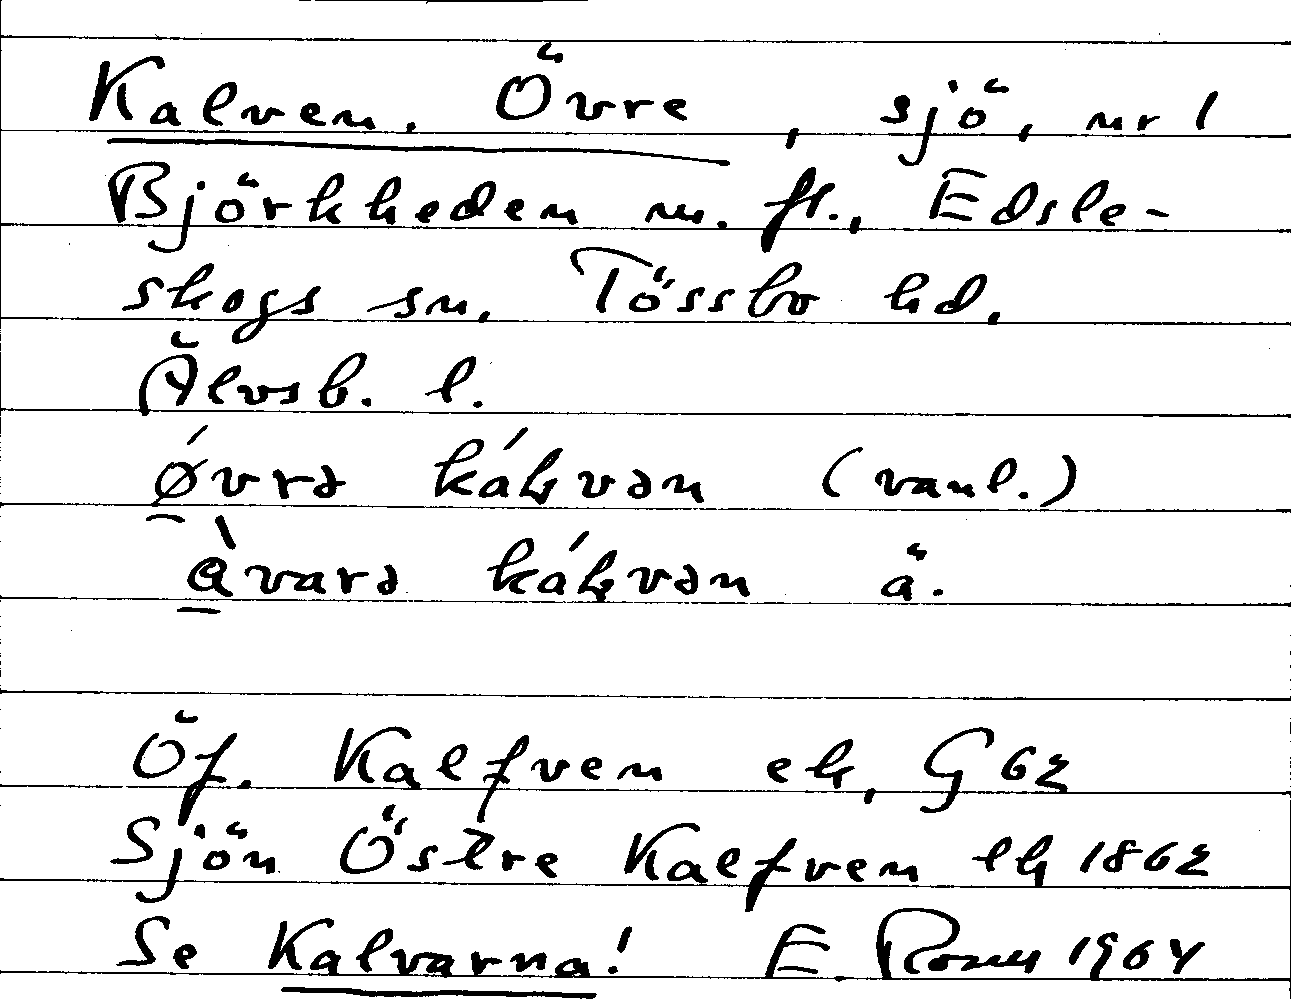 Kalven. Övre, sjö, nr 1
Björkheden m. fl., Edsle-
skogs sn. Tössbo hd.
Älvsb. l.
ǿvrə káɫvən (vanl.)
àvarə káɫvən ä.
Öf. Kalfven ek, G 62
Sjön Östre Kalfven lk 1862
Se Kalvarna! E. 1964